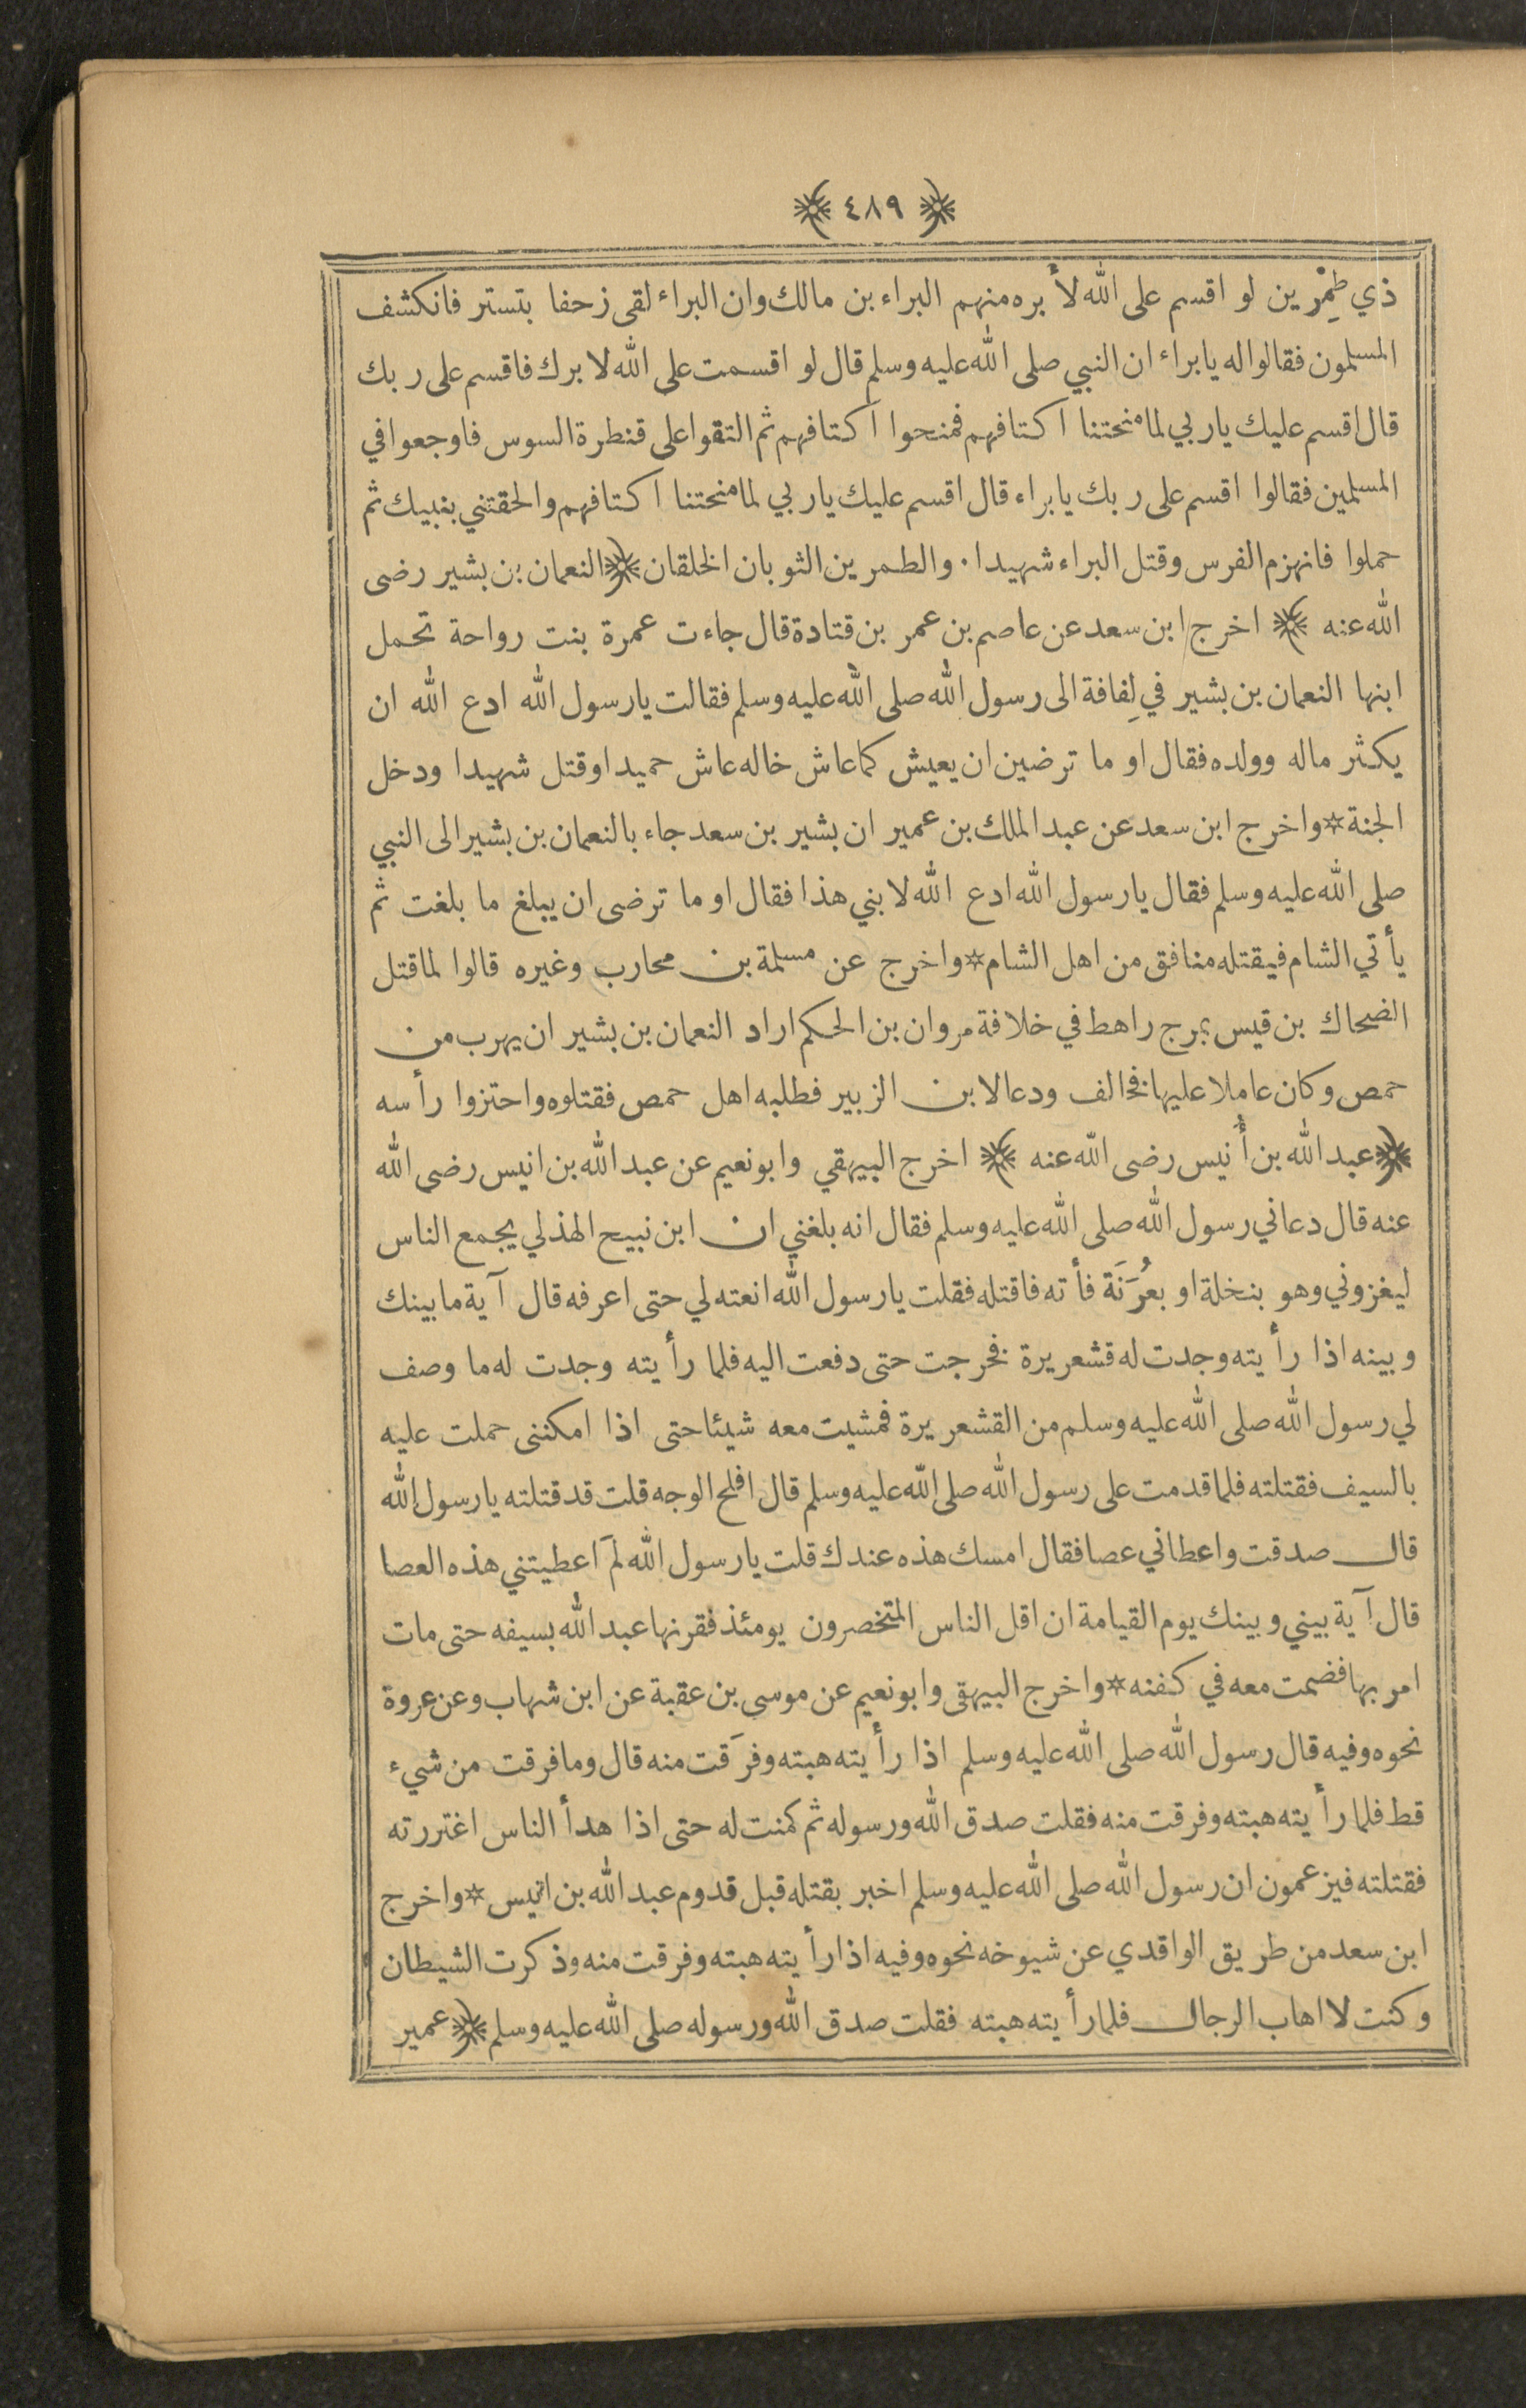 ﴿ ٤٨٩ ﴾
ذي طِمْرين لو اقسم على الله لأبره منهم البراء بن مالك وان البراء لقى زحفا بتستر فانكشف
المسلمون فقالوا له يا براء ان النبي صلى الله عليه وسلم قال لو اقسمت على الله لابرك فاقسم على ربك
قال اقسم عليك يا ربي لما منحتنا اكتافهم فمنحوا اكتافهم ثم التقوا على قنطرة السوس فاوجعوا في
المسلمين فقالوا اقسم على ربك يا براء قال اقسم عليك يا ربي لما منحتنا اكتافهم والحقتني بنبيك ثم
حملوا فانهزم الفرس وقتل البراء شهيدا . والطمرين الثوبان الخلقان ﴿ النعمان بن بشير رضى
الله عنه ﴾ اخرج ابن سعد عن عاصم بن عمر بن قتادة قال جاءت عمرة بنت رواحة تحمل
ابنها النعمان بن بشير في لِفافة الى رسول الله صلى الله عليه وسلم فقالت يا رسول الله ادع الله ان
يكثر ماله وولده فقال او ما ترضين ان يعيش كما عاش خاله عاش حميدا وقتل شهيدا ودخل
الجنة * واخرج ابن سعد عن عبد الملك بن عمير ان بشير بن سعد جاء بالنعمان بن بشير الى النبي
صلى الله عليه وسلم فقال يا رسول الله ادع الله لابني هذا فقال او ما ترضى ان يبلغ ما بلغت ثم
يأتي الشام فيقتله منافق من اهل الشام * واخرج عن مسلمة بن محارب وغيره قالوا لما قتل
الضحاك بن قيس بمرج راهط في خلافة مروان بن الحكم اراد النعمان بن بشير ان يهرب من
حمص وكان عاملا عليها فخالف ودعا لابن الزبير فطلبه اهل حمص فقتلوه واحتزوا رأسه
﴿ عبد الله بن أُنيس رضى الله عنه ﴾ اخرج البيهقي وابو نعيم عن عبد الله بن انيس رضى الله
عنه قال دعاني رسول الله صلى الله عليه وسلم فقال انه بلغني ان ابن نبيح الهذلي يجمع الناس
ليغزوني وهو بنخلة او بعُرَنَة فأته فاقتله فقلت يا رسول الله انعته لي حتى اعرفه قال آية ما بينك
وبينه اذا رأيته وجدت له قشعريرة فخرجت حتى دفعت اليه فلما رأيته وجدت له ما وصف
لي رسول الله صلى الله عليه وسلم من القشعريرة فمشيت معه شيئا حتى اذا امكننى حملت عليه
بالسيف فقتلته فلما قدمت على رسول الله صلى الله عليه وسلم قال افلح الوجه قلت قد قتلته يا رسول الله
قال صدقت واعطاني عصا فقال امسك هذه عندك قلت يا رسول الله لَم اعطيتني هذه العصا
قال آية بيني وبينك يوم القيامة ان اقل الناس المتخصرون يومئذ فقرنها عبد الله بسيفه حتى مات
امر بها فضمت معه في كفنه * واخرج البيهقى وابو نعيم عن موسى بن عقبة عن ابن شهاب وعن عروة
نحوه وفيه قال رسول الله صلى الله عليه وسلم اذا رأيته هبته وفرَقت منه قال وما فرقت من شيء
قط فلما رأيته هبته وفرقت منه فقلت صدق الله ورسوله ثم كمنت له حتى اذا هدأ الناس اغتررته
فقتلته فيزعمون ان رسول الله صلى الله عليه وسلم اخبر بقتله قبل قدوم عبد الله بن انيس * واخرج
ابن سعد من طريق الواقدي عن شيوخه نحوه وفيه اذا رأيته هبته وفرقت منه وذكرت الشيطان
وكنت لا اهاب الرجال فلما رأيته هبته فقلت صدق الله ورسوله صلى الله عليه وسلم ﴿ عمير